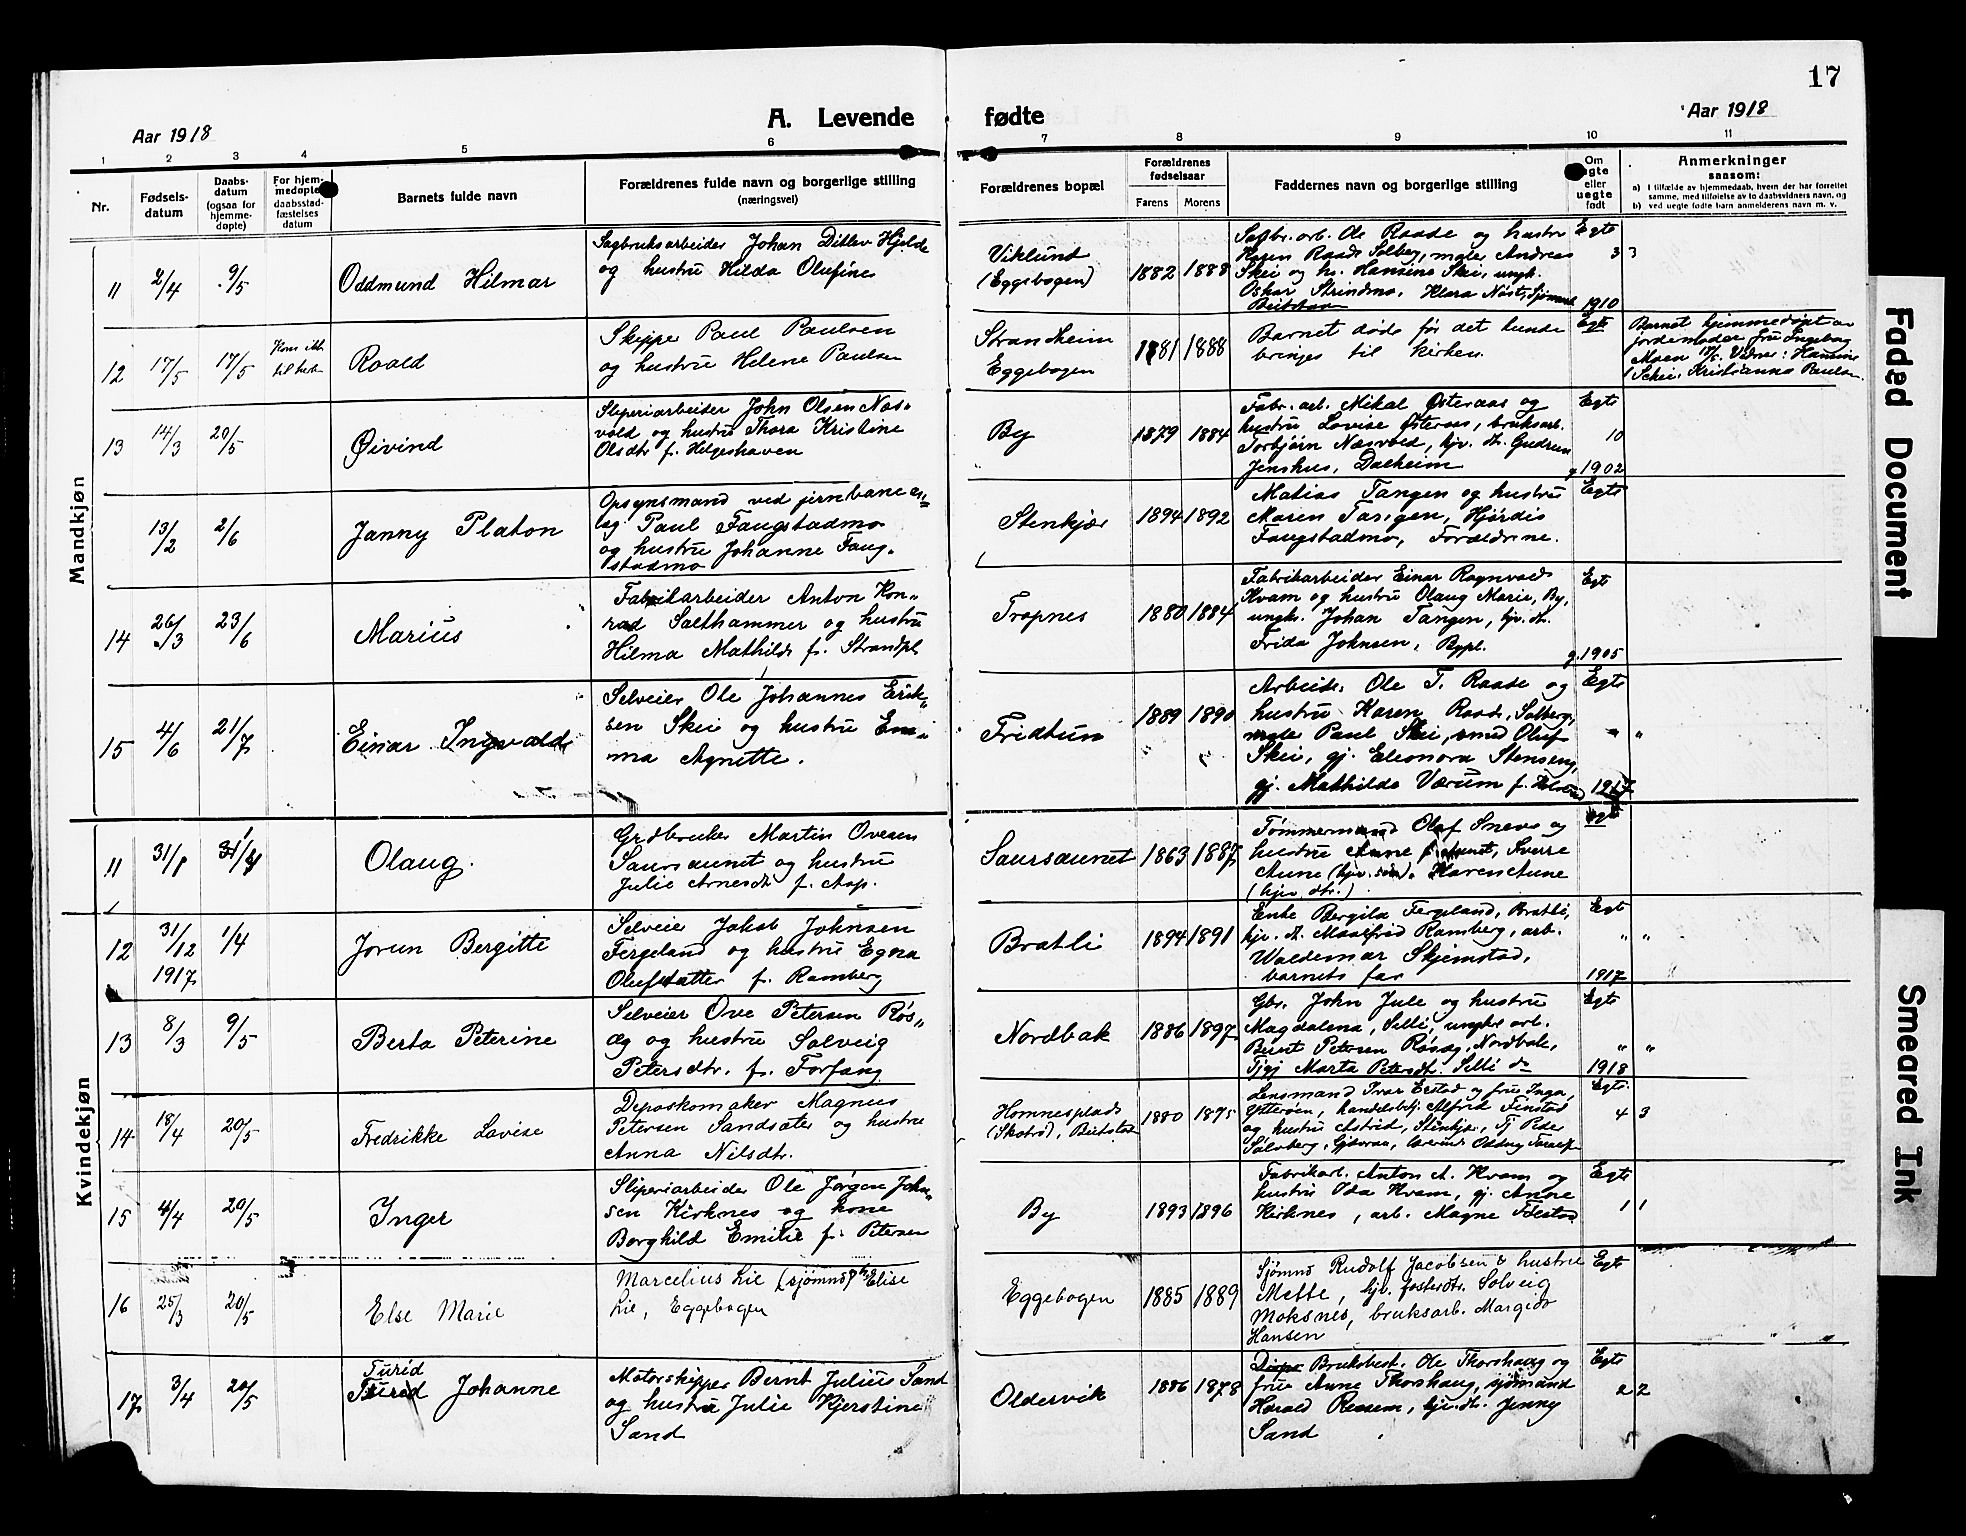 17
Aar 1918
A. Levende fødte
Aar 1918
1 2 3 4 5 6 7 8 9 10 11
Nr.
Fødsels-
datum
Daabs-
datum
(ogsaa for
hjemme-
døpte)
For hjem-
medøpte
daabsstad-
fæstelses
datum
Barnets fulde navn
Forældrenes fulde navn og borgerlige stilling
(næringsvei)
Forældrenes bopæl
Forældrenes
fødselsaar
Farens Morens
Faddernes navn og borgerlige stilling
Om
ægte
eller
uegte
født
Anmerkninger
saasom:
a) I tilfælde av hjemmedaab, hvem der har forrettet
samme, med tilføielse av to daabsvidners navn, og
b) ved uegte født barn anmelderens navn m. v.
Mandkjøn
11 2/4 9/5 Oddmund Hilmar
Sagbruksarbeider Johan Ditlev Hjelde
og hustru Hilda Olufine
Viklund
(Eggebogen)
1882 1888
Sagbr. arb. Ole Raade og hustru
Karen Raade Solberg, maler Andreas
Skei og h. Hansine Skei, ungk.
Oskar Strindmo, Klara Nöst, Sjömand
Beitstaden
Egte
3 3
1910
12 17/5 17/5 Kom ikke
til kirken
Roald
Skipper Paul Paulsen
og hustru Helene Paulsen
Strandheim
Eggebogen
1881 1888
Barnet døde før det kunde
bringes til kirken.
Egte
Barnet hjemmedøpt av
jordemoder fru Ingeborg
Moen 17/5. Vidner: Hansine
Skei, Kristianna Paulsen.
13 14/3 20/5 Øivind
Sliperiarbeider John Olsen Næs-
vold og hustru Thora Kristine
Olsdtr f. Helgeshaven
By
1879 1884
Fabr. arb. Mikal Østeraas og
hustru Lovise Østeraas, bruksarb.
Torbjörn Næsvold, hjv. dt. Gudrun
Jenshus, Dalheim
Egte
10
g. 1902
13/2 2/6 Janny Platon
Opsynsmand ved jernbanean-
læg Paul Faugstadmo
og hustru Johanne Faug-
stadmo
Stenkjær
1894 1892
Matias Tangen og hustru
Maren Tangen, Hjördis
Faugstadmo, Forældrene.
Egte
14 26/3 23/6 Marius
Fabrikarbeider Anton Kon-
rad Salthammer og hustru
Hilma Mathilde f. Strandpl
Tropnes
1880 1884
Fabrikarbeider Einar Ragnvald
Kvam og hustru Olaug Marie, By,
ungk. Johan Tangen, hjv. dt.
Frida Johnsen, Bypl.
Egte
g. 1905
15 4/6 21/7 Einar Ingvald
Selveier Ole Johannes Erik-
sen Skei og hustru Em-
ma Agnette.
Fridtun
1889 1890
Arbeider Ole T. Raade og
hustru Karen Raade, Solberg,
maler Paul Skei, smed Oluf
Skei, gj. Eleonora Stenseng,
gj. Mathilde Værum
Egte
" "
Kvindekjøn
11 31/1 Olaug.
Grdbruker Martin Ovesen
Saursaunet og hustru
Julie Arnesdt f. Asp.
Saursaunet
1863 1887
Tömmermand Olaf Sneve og
hustru Anne f. Aunet, Sverre
Aune (hjv. søn), Karen Aune
(hjv. dtr.)
egte
12 31/12
1917
1/4 Jorun Bergitte
Selveier Jakob Johnsen
Fergeland og hustru Egora
Olufsdatter f. Ramberg
Bratli
1894 1891
Enke Bergita Fergeland, Bratli,
hjv. dt. Maalfrid Ramberg, arb.
Waldemar Skjemstad,
barnets far
Egte
" "
1917
13 8/3 9/5 Berta Peterine
Selveier Ove Petersen Røs-
æg og hustru Solveig
Petersdtr. f. Forfang
Nordbak
1886 1897
Gbr. John Jule og hustru
Magdalena, Selli, ungkar arb.
Bernt Petersen Røsæg, Nordbak,
Tjgj Marta Petersdt. Selli
Egte
" "
1918
14 18/4 20/5 Fredrikke Lovise
Depotskomaker Magnus
Petersen Sandsæter og hustru
Anna Nilsdtr.
Homnesplads
(Skatrö), Beitstad
1880 1875
Lensmand Ivar Eistad og frue Inga,
Ytterøen, handelsbetj. Alfred Finstad
og hustru Astrid, Stenkjær, Tj Peder
Solvberg,
Egte.
4 3
15 4/4 20/5 Inger
Sliperiarbeider Ole Jørgen John-
sen Kirknes og kone
Borghild Emilie f. Petersen
By
1893 1896
Fabrikarb. Anton A. Kvam og
hustru Ida Kvam, gj. Anne
Kirknes, arb. Magne
Egte
1 1
16 25/3 20/5 Else Marie
Marcelius Lie (sjömnd) & h Elise
Lie, Eggebogen
Eggebogen
1885 1889
Sjömnd Rudolf Jacobsen & hustru
Mette, hjv. fosterdtr. Solveig
Moksnes, bruksarb. Margido
Hansen
Egte
" "
17 3/4 20/5 Turid
Turid Johanne
Motorskipper Bernt Julius Sand
og hustru Julie Kjerstine
Sand
Oldervik
1886 1878
Bruksbest. Ole Thorshaug og
frue Anne Thorshaug, sjömand
Harald Ressem, hjv. dt. Jenny
Sand
Egte
2 2
Faded Document
Smeared Ink